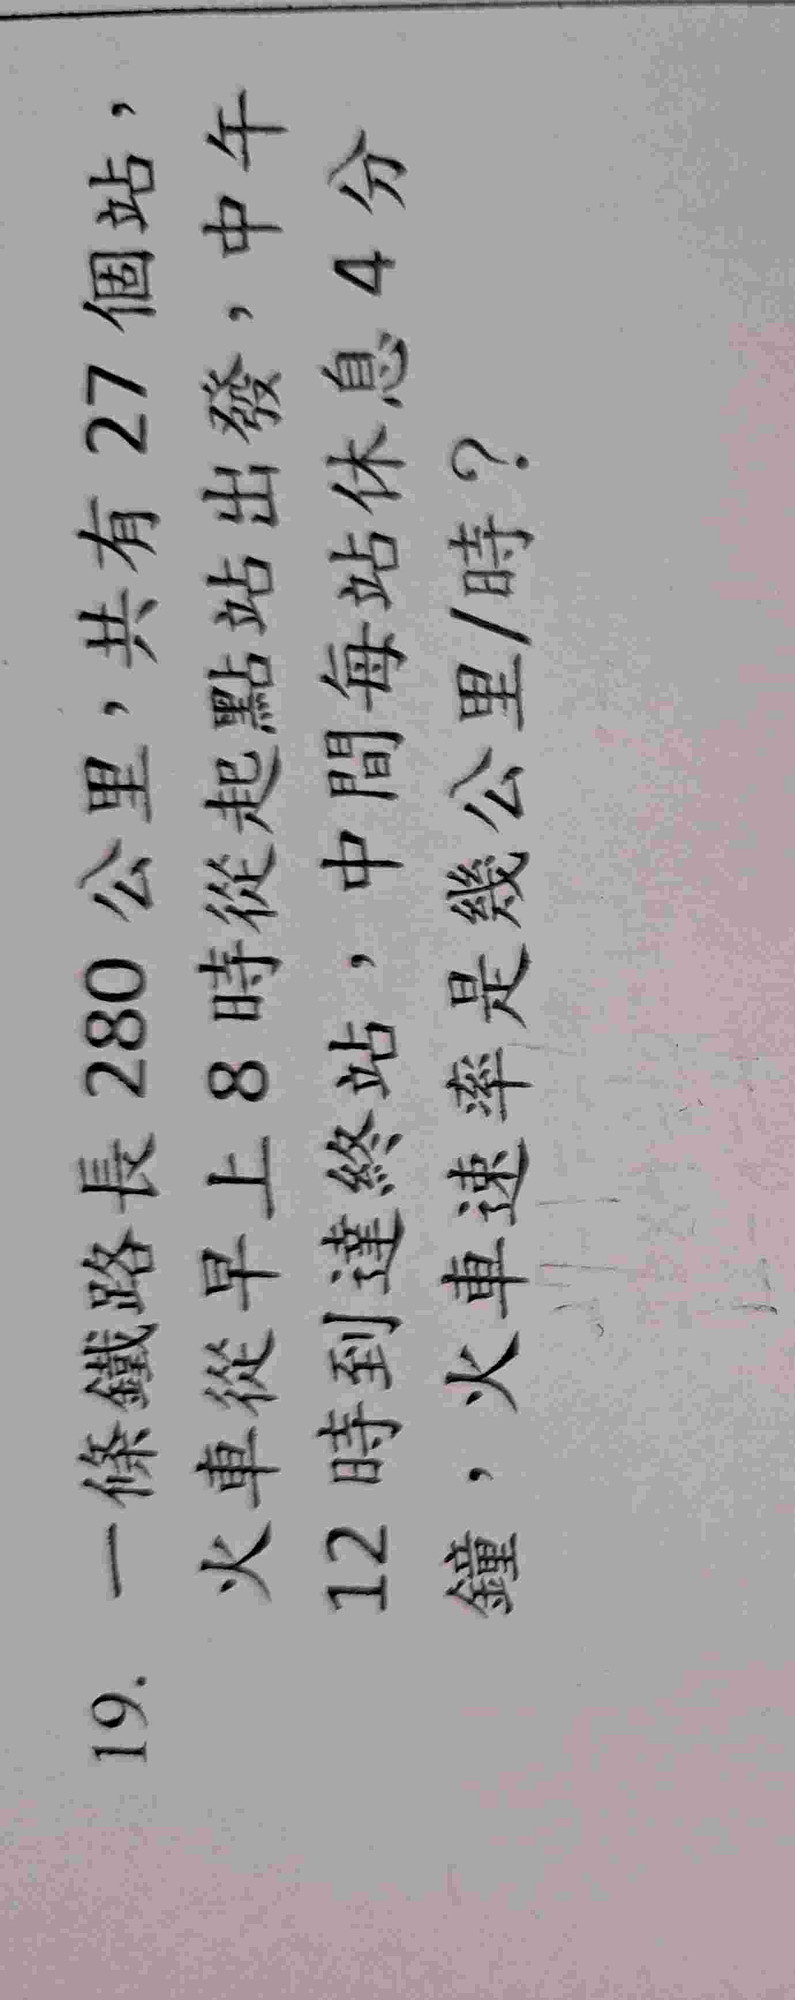 19. 一條鐵路長 280 公里，共有 27 個站，
火車從早上 8 時從起點站出發，中午
12 時到達終站，中間每站休息 4 分
鐘，火車速率是幾公里/時？